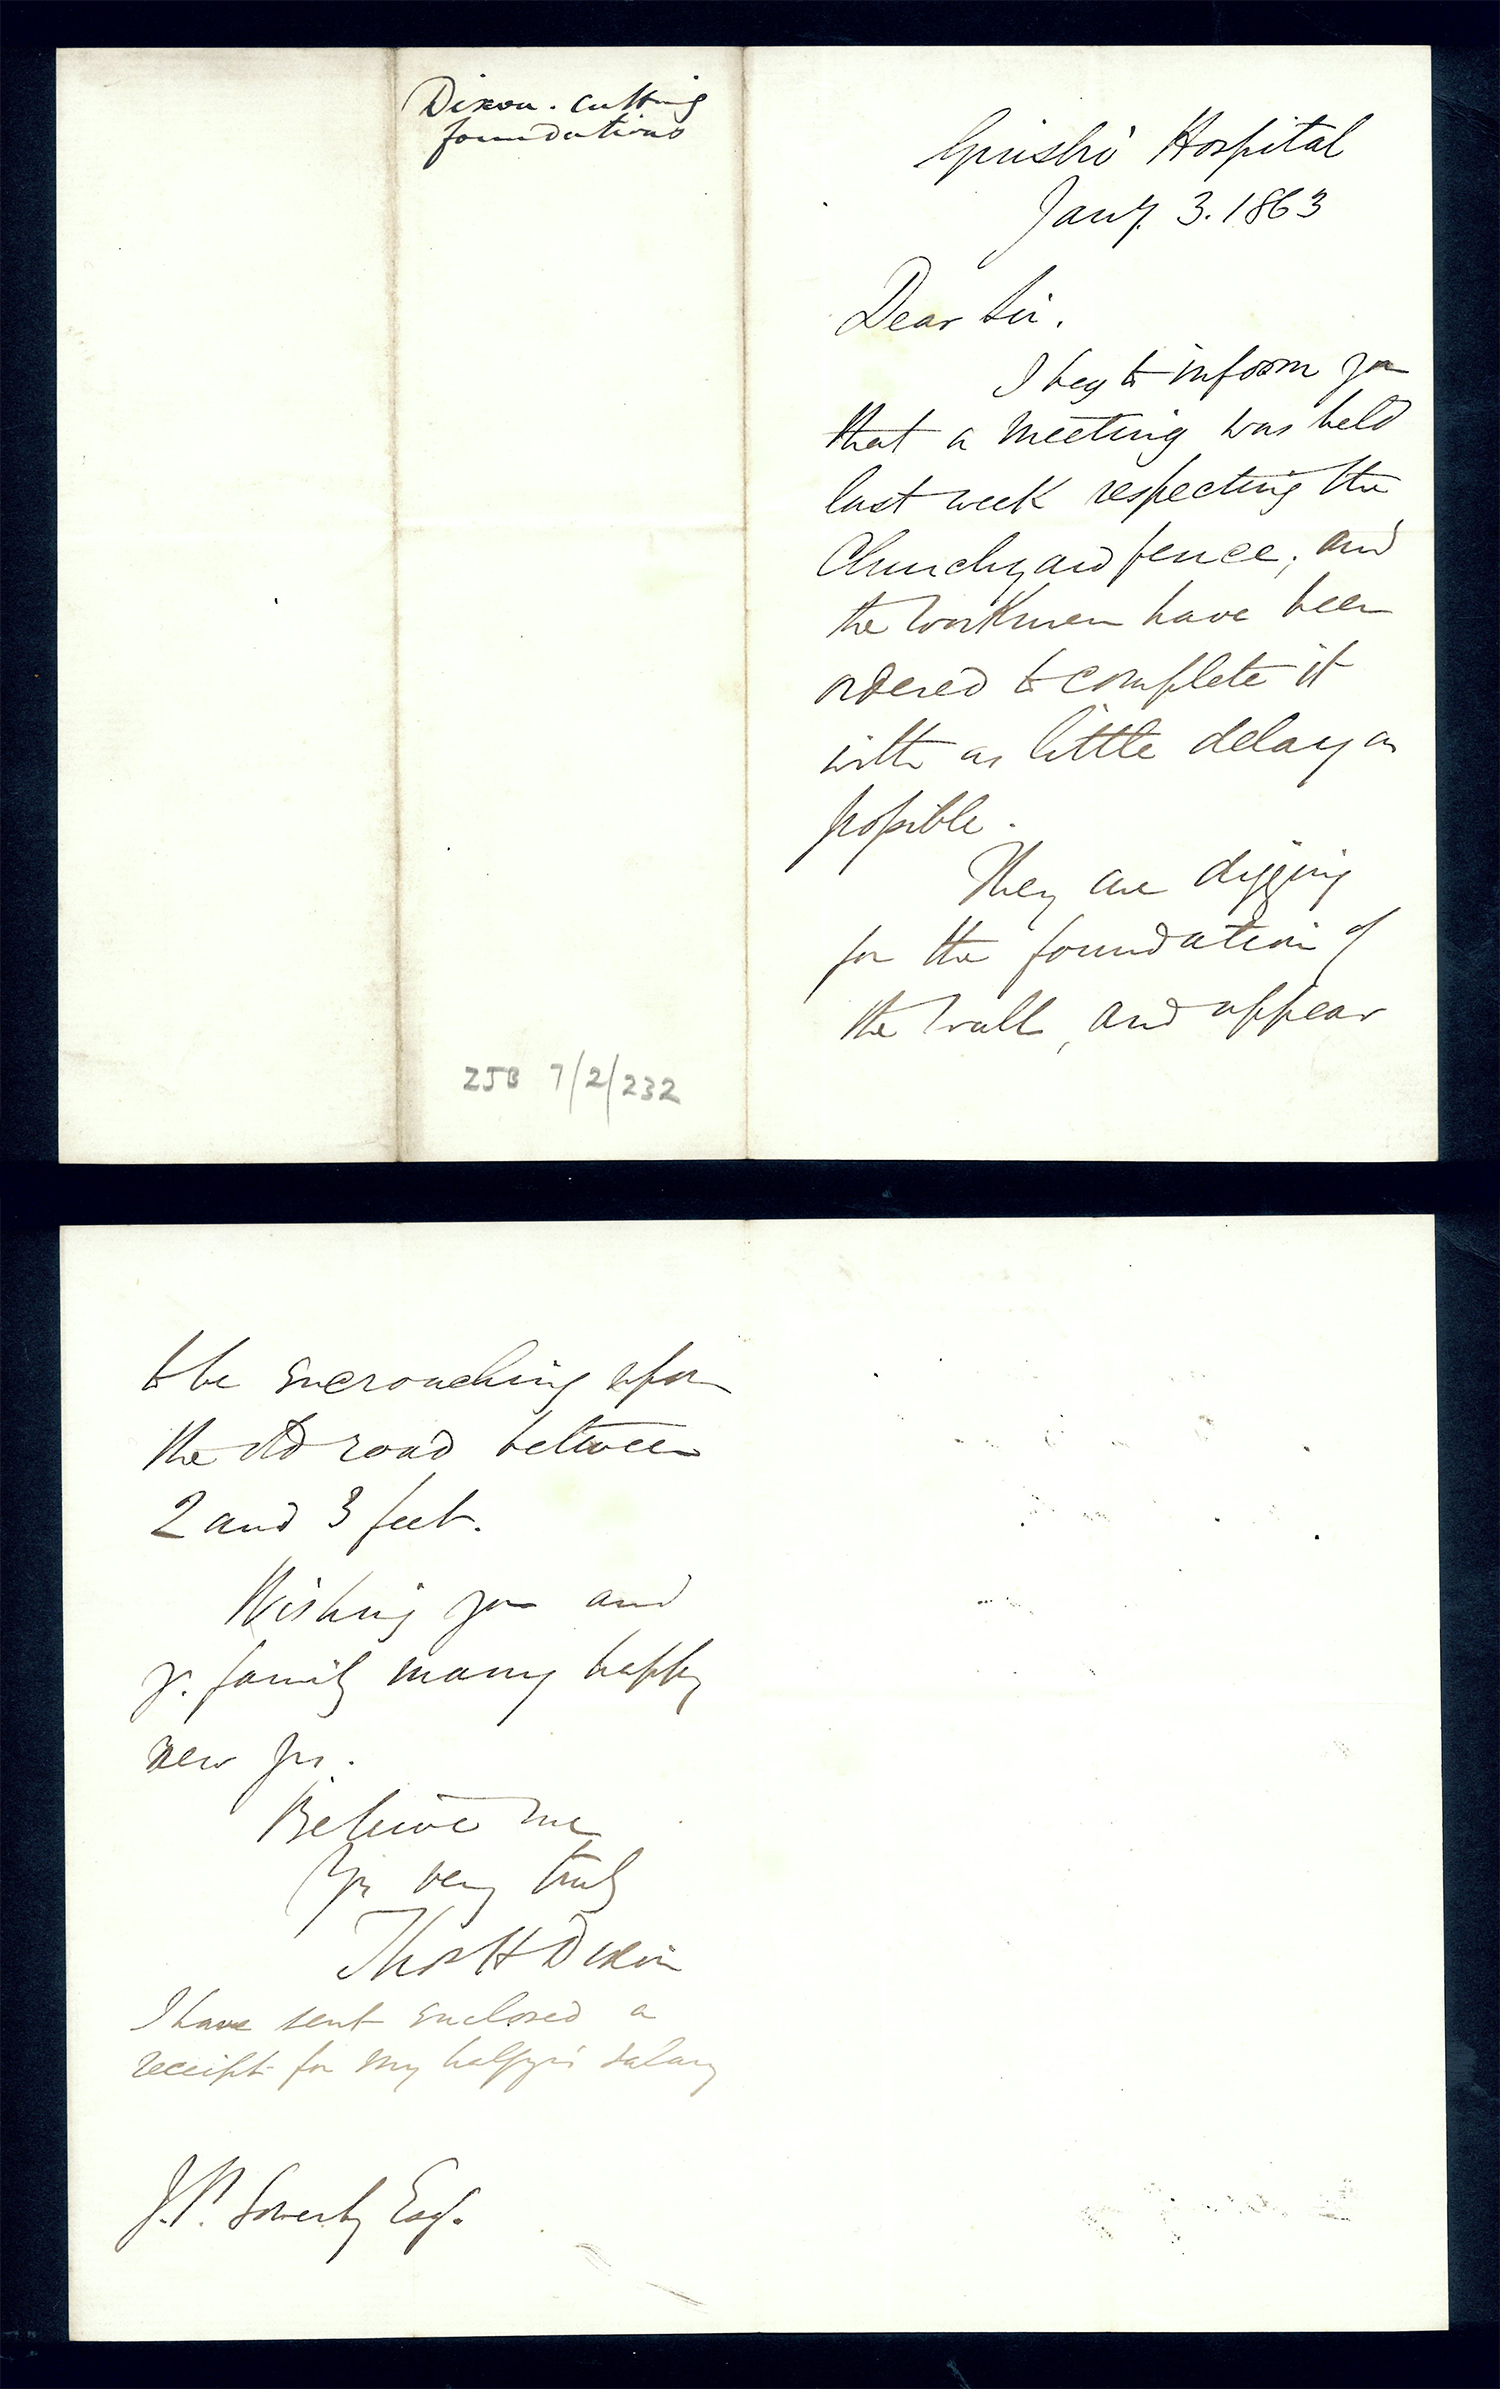 Dixon. cutting
foundations
Hospital
Jany. 3. 1863
Dear Sir.
I beg to inform you
that a meeting was held
last week respecting the
Churchyard fence, and
the workmen have been
ordered to complete it
with as little delay as
possible.
They are digging
for the foundation of
the wall, and appear
ZJB 7/2/232
to be encroaching upon
the old road between
2 and 3 feet.
Wishing you and
yr. family many happy
new yrs.
Believe me
Yrs very truly
Thos H Dixon
I have sent enclosed a
receipt for my halfyrs salary
J.P. Sowerby Esq.